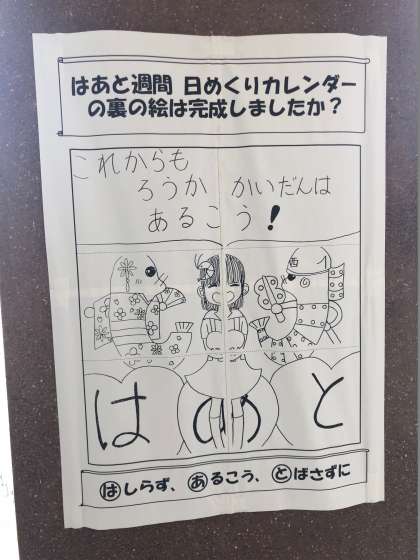 はあと週間 日めくりカレンダー
の裏の絵は完成しましたか?
これからも
ろうか かいだんは
あるこう!
西
はあと
はしらず、あるこう、とばさずに